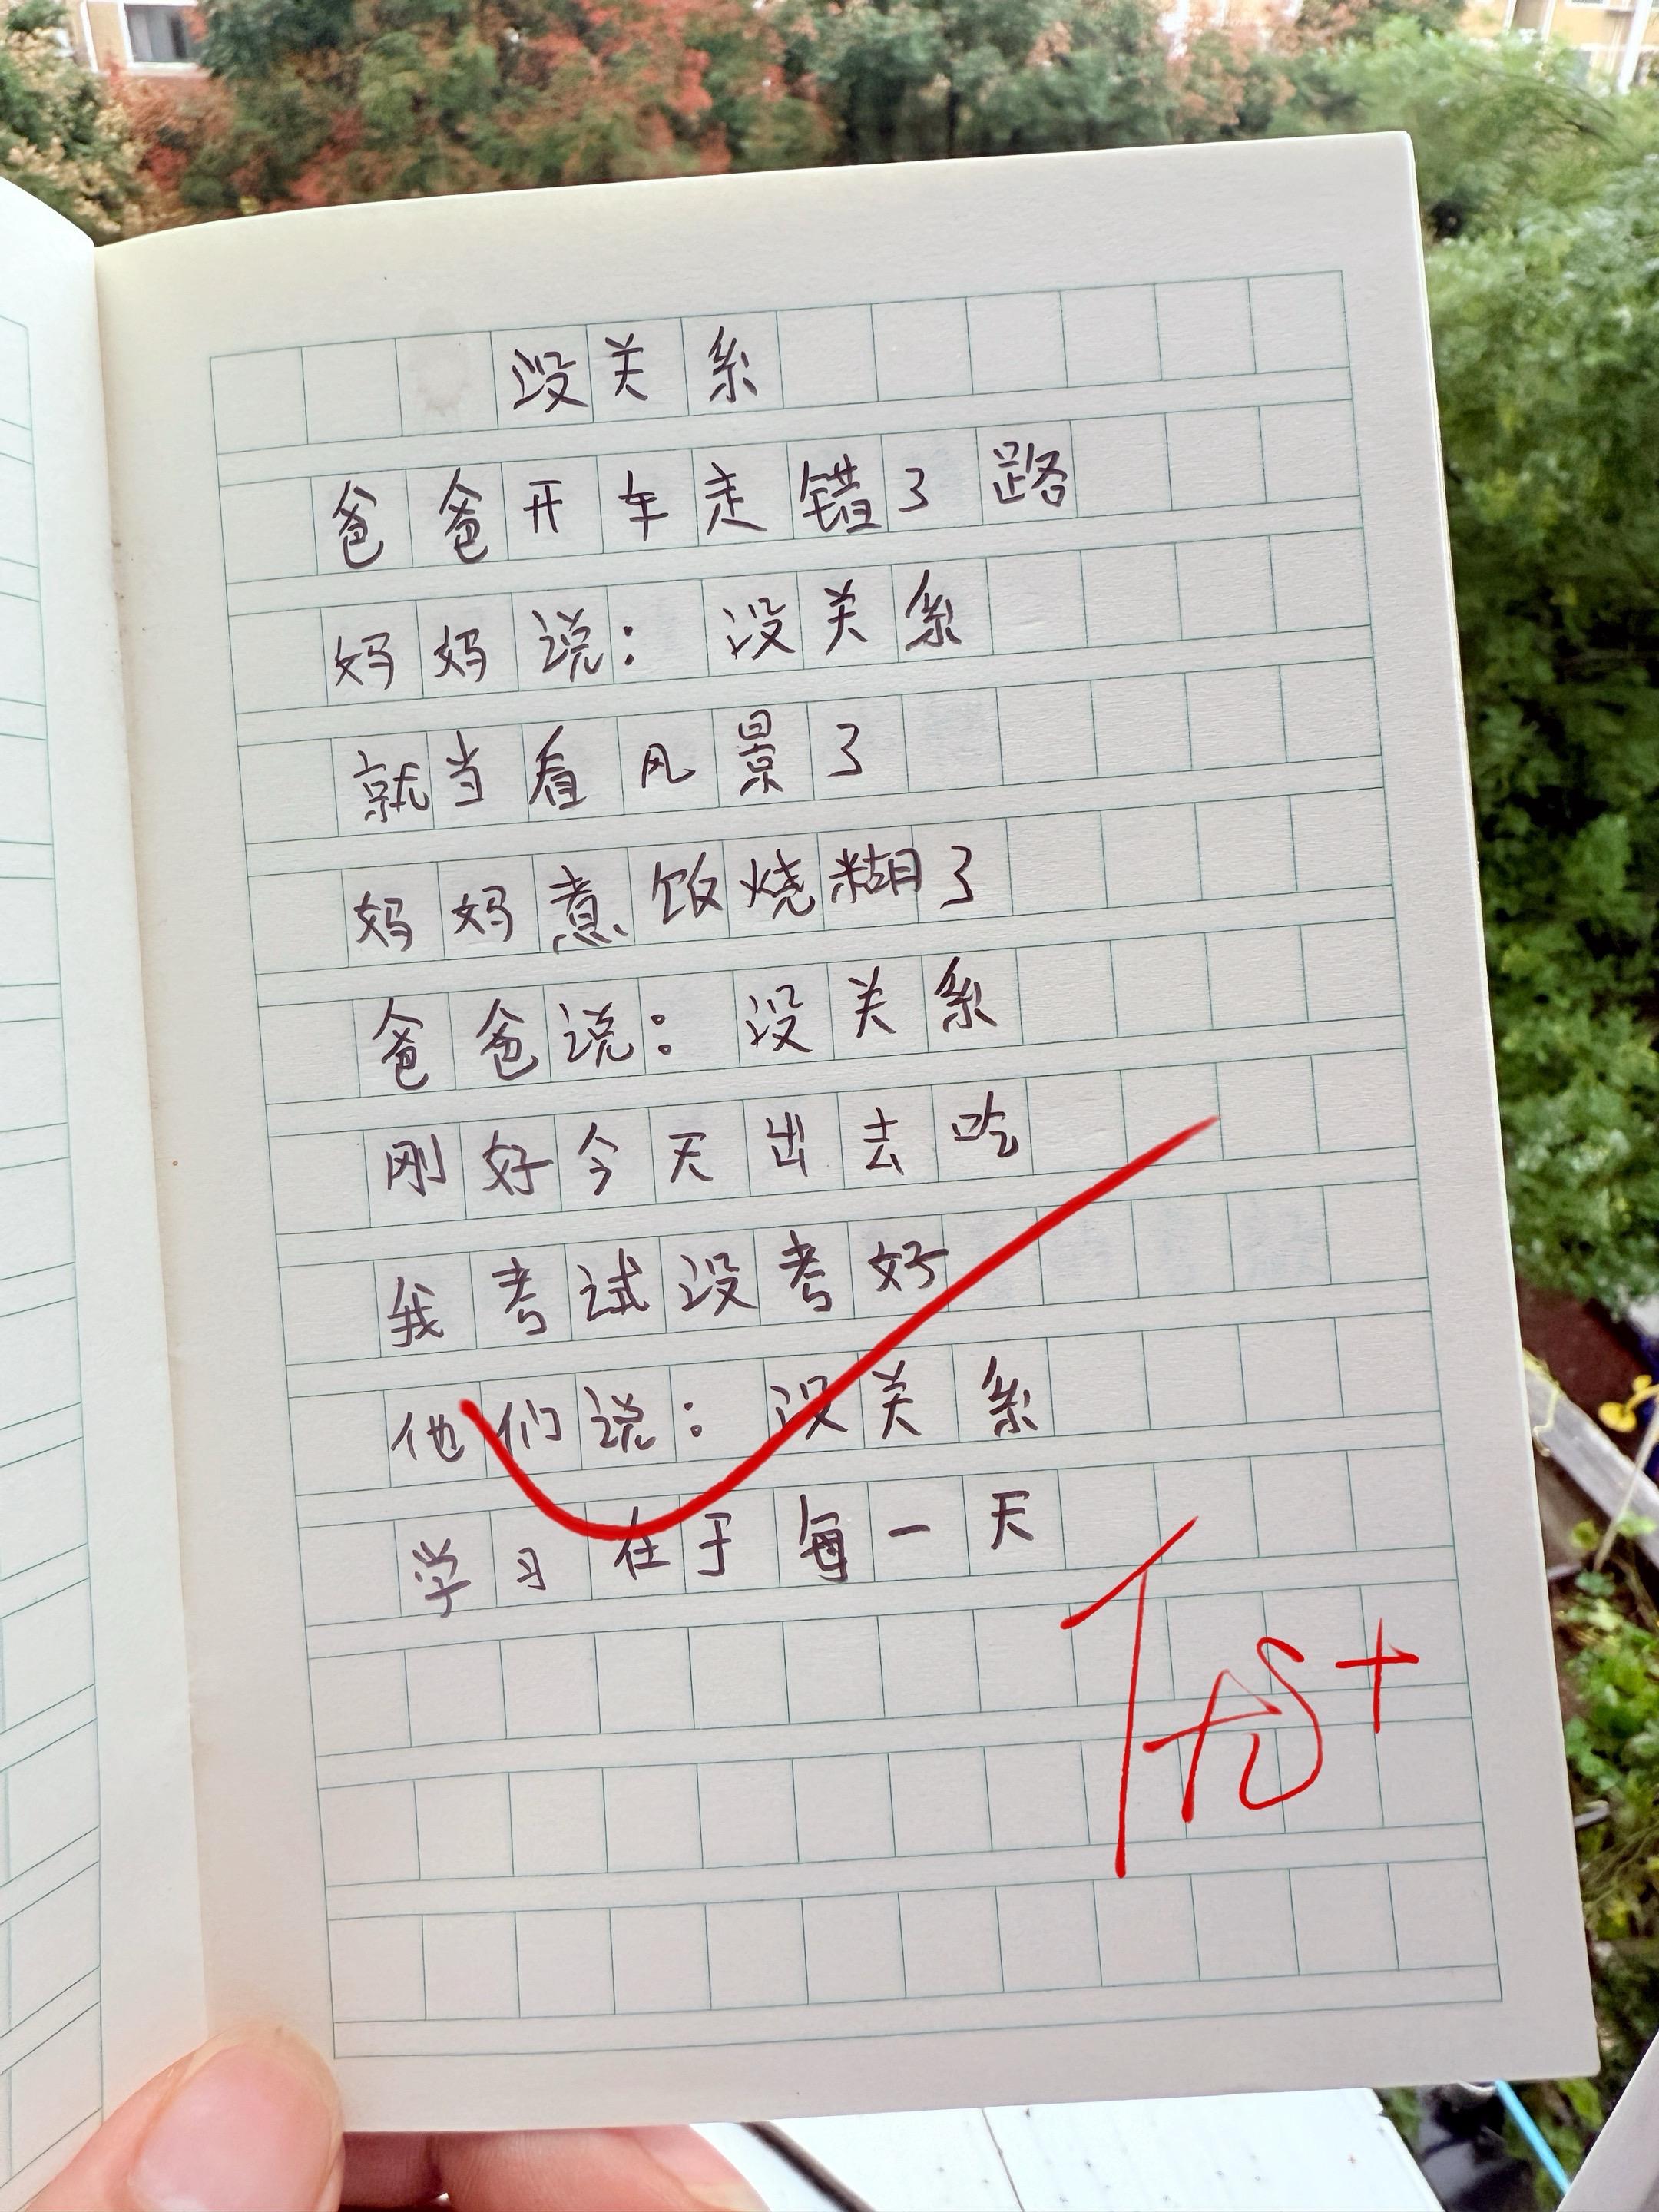 没关系
爸爸开车走错了路
妈妈说：没关系
就当看风景了
妈妈煮饭烧糊了
爸爸说：没关系
刚好今天出去吃
我考试没考好
他们说：没关系
学习在于每一天
优+